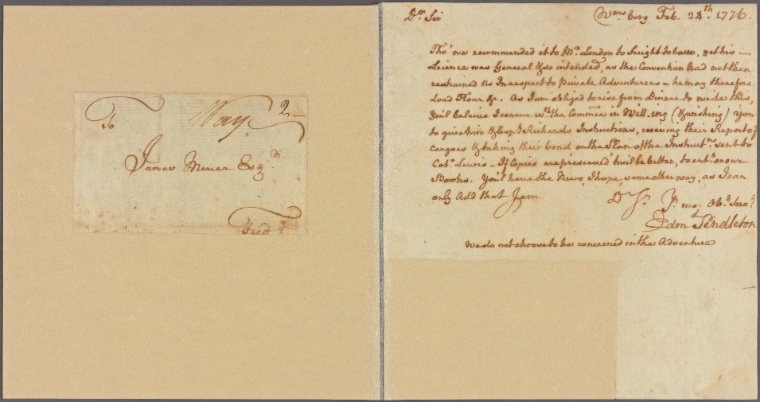 To
James Mercer Esqr.
Fred
Dr. Sir
Wmsburg Feb. 24th. 1776.
Tho' we recommended it to Mr. London to freight Tobacco, yet his
Licence was General & so intended, as the Convention had not then
restrained us in respect to private Adventurers – he may therefore
Load Flour &c. As I am obliged to rise from Dinner to write this,
You'l believe I concur wth. the Commee. in Will
to give him & Capt. Richards Instructions, receiving their Report of
Cargoes & taking their bond on the Plan of the Instructns. sent to
Colo. Lewis – If Copies are preserved twil be better, to enter on our
Books. You'l have the News, I hope, some other way, as I can
only Add that I am
Dr Sr. Yr. mo. Ob. Servt.
Edm Pendleton
We do not choose to be concerned in the Adventure